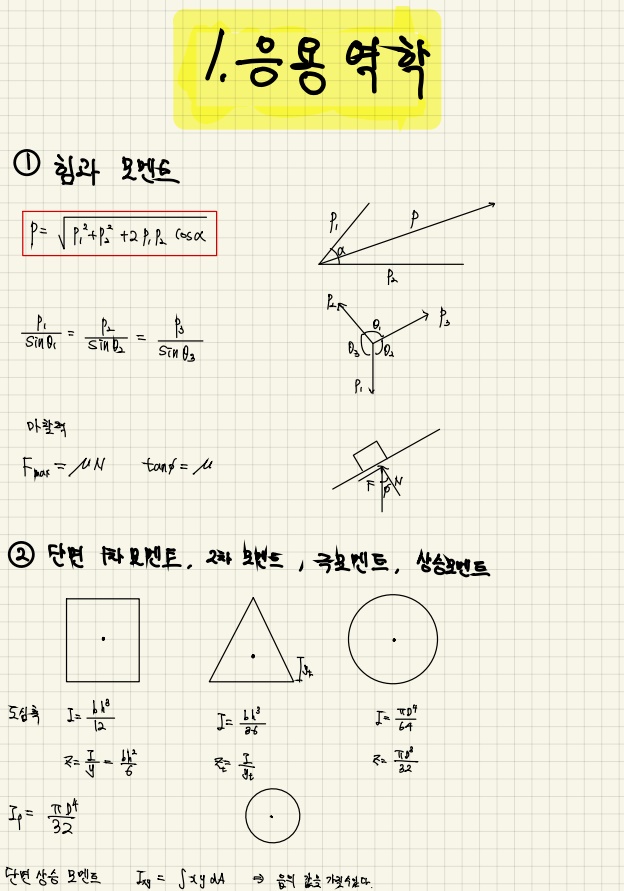 1. 응용 역학
① 힘과 모멘트
P = √(P₁² + P₂² + 2P₁P₂ cosα)
P₁ P α P₂
P₁/sinθ₁ = P₂/sinθ₂ = P₃/sinθ₃
P₂ θ₁ P₃ θ₃ θ₂ P₁
마찰력
Fmax = μN tanφ = μ
F φ N
② 단면 1차 모멘트, 2차 모멘트, 극모멘트, 상승모멘트
yt
도심축 I = bh³/12 I = bh³/36 I = πD⁴/64
Z = I/y = bh²/6 Zt = I/yt Z = πD³/32
Ip = πD⁴/32
단면 상승 모멘트 Ixy = ∫xy dA ⇒ 음의 값을 가질수있다.